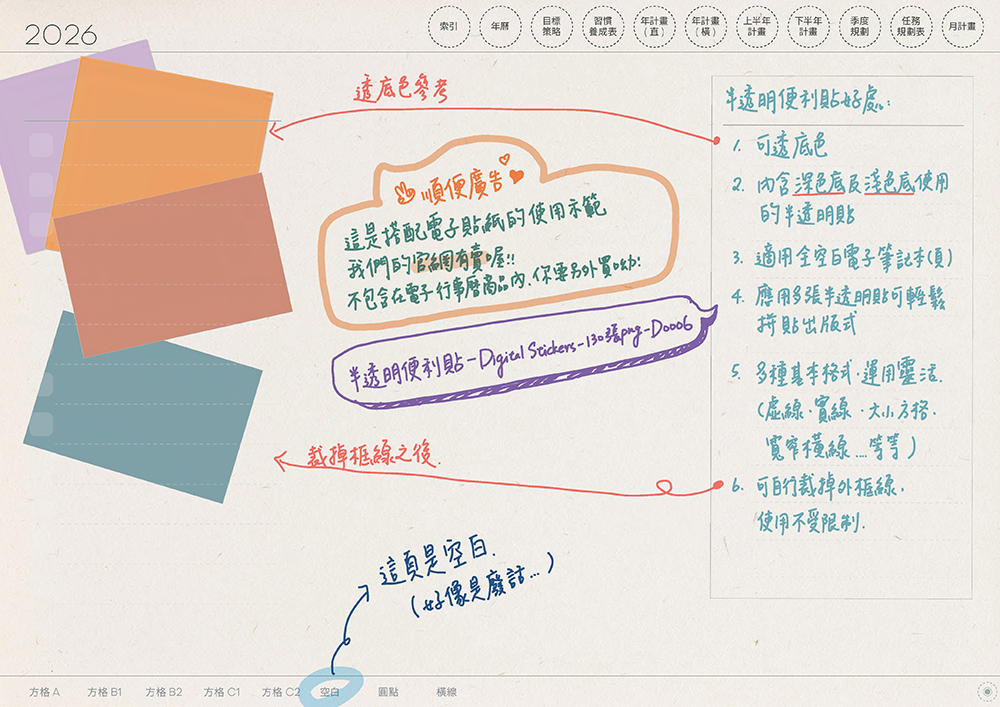 2026
索引
年曆
目標
策略
習慣
養成表
年計畫
(直)
年計畫
(橫)
上半年
計畫
下半年
計畫
季度
規劃
任務
規劃表
月計畫
透底色參考
順便廣告
這是搭配電子貼紙的使用示範
我們的官網有賣喔!!
不包含在電子行事曆商品內、你要另外買呦!
半透明便利貼-Digital Stickers-130張png-D0006
裁掉框線之後.
半透明便利貼好處:
1. 可透底色
2. 內含深色底及淺色底使用
的半透明貼
3. 適用全空白電子筆記本(頁)
4. 應用多張半透明貼可輕鬆
拼貼出版式
5. 多種基本格式.運用靈活.
(虛線.實線.大小方格.
寬窄橫線....等等)
6. 可自行裁掉外框線.
使用不受限制.
這頁是空白.
(好像是廢話...)
方格 A
方格 B1
方格 B2
方格 C1
方格 C2
空白
圓點
橫線